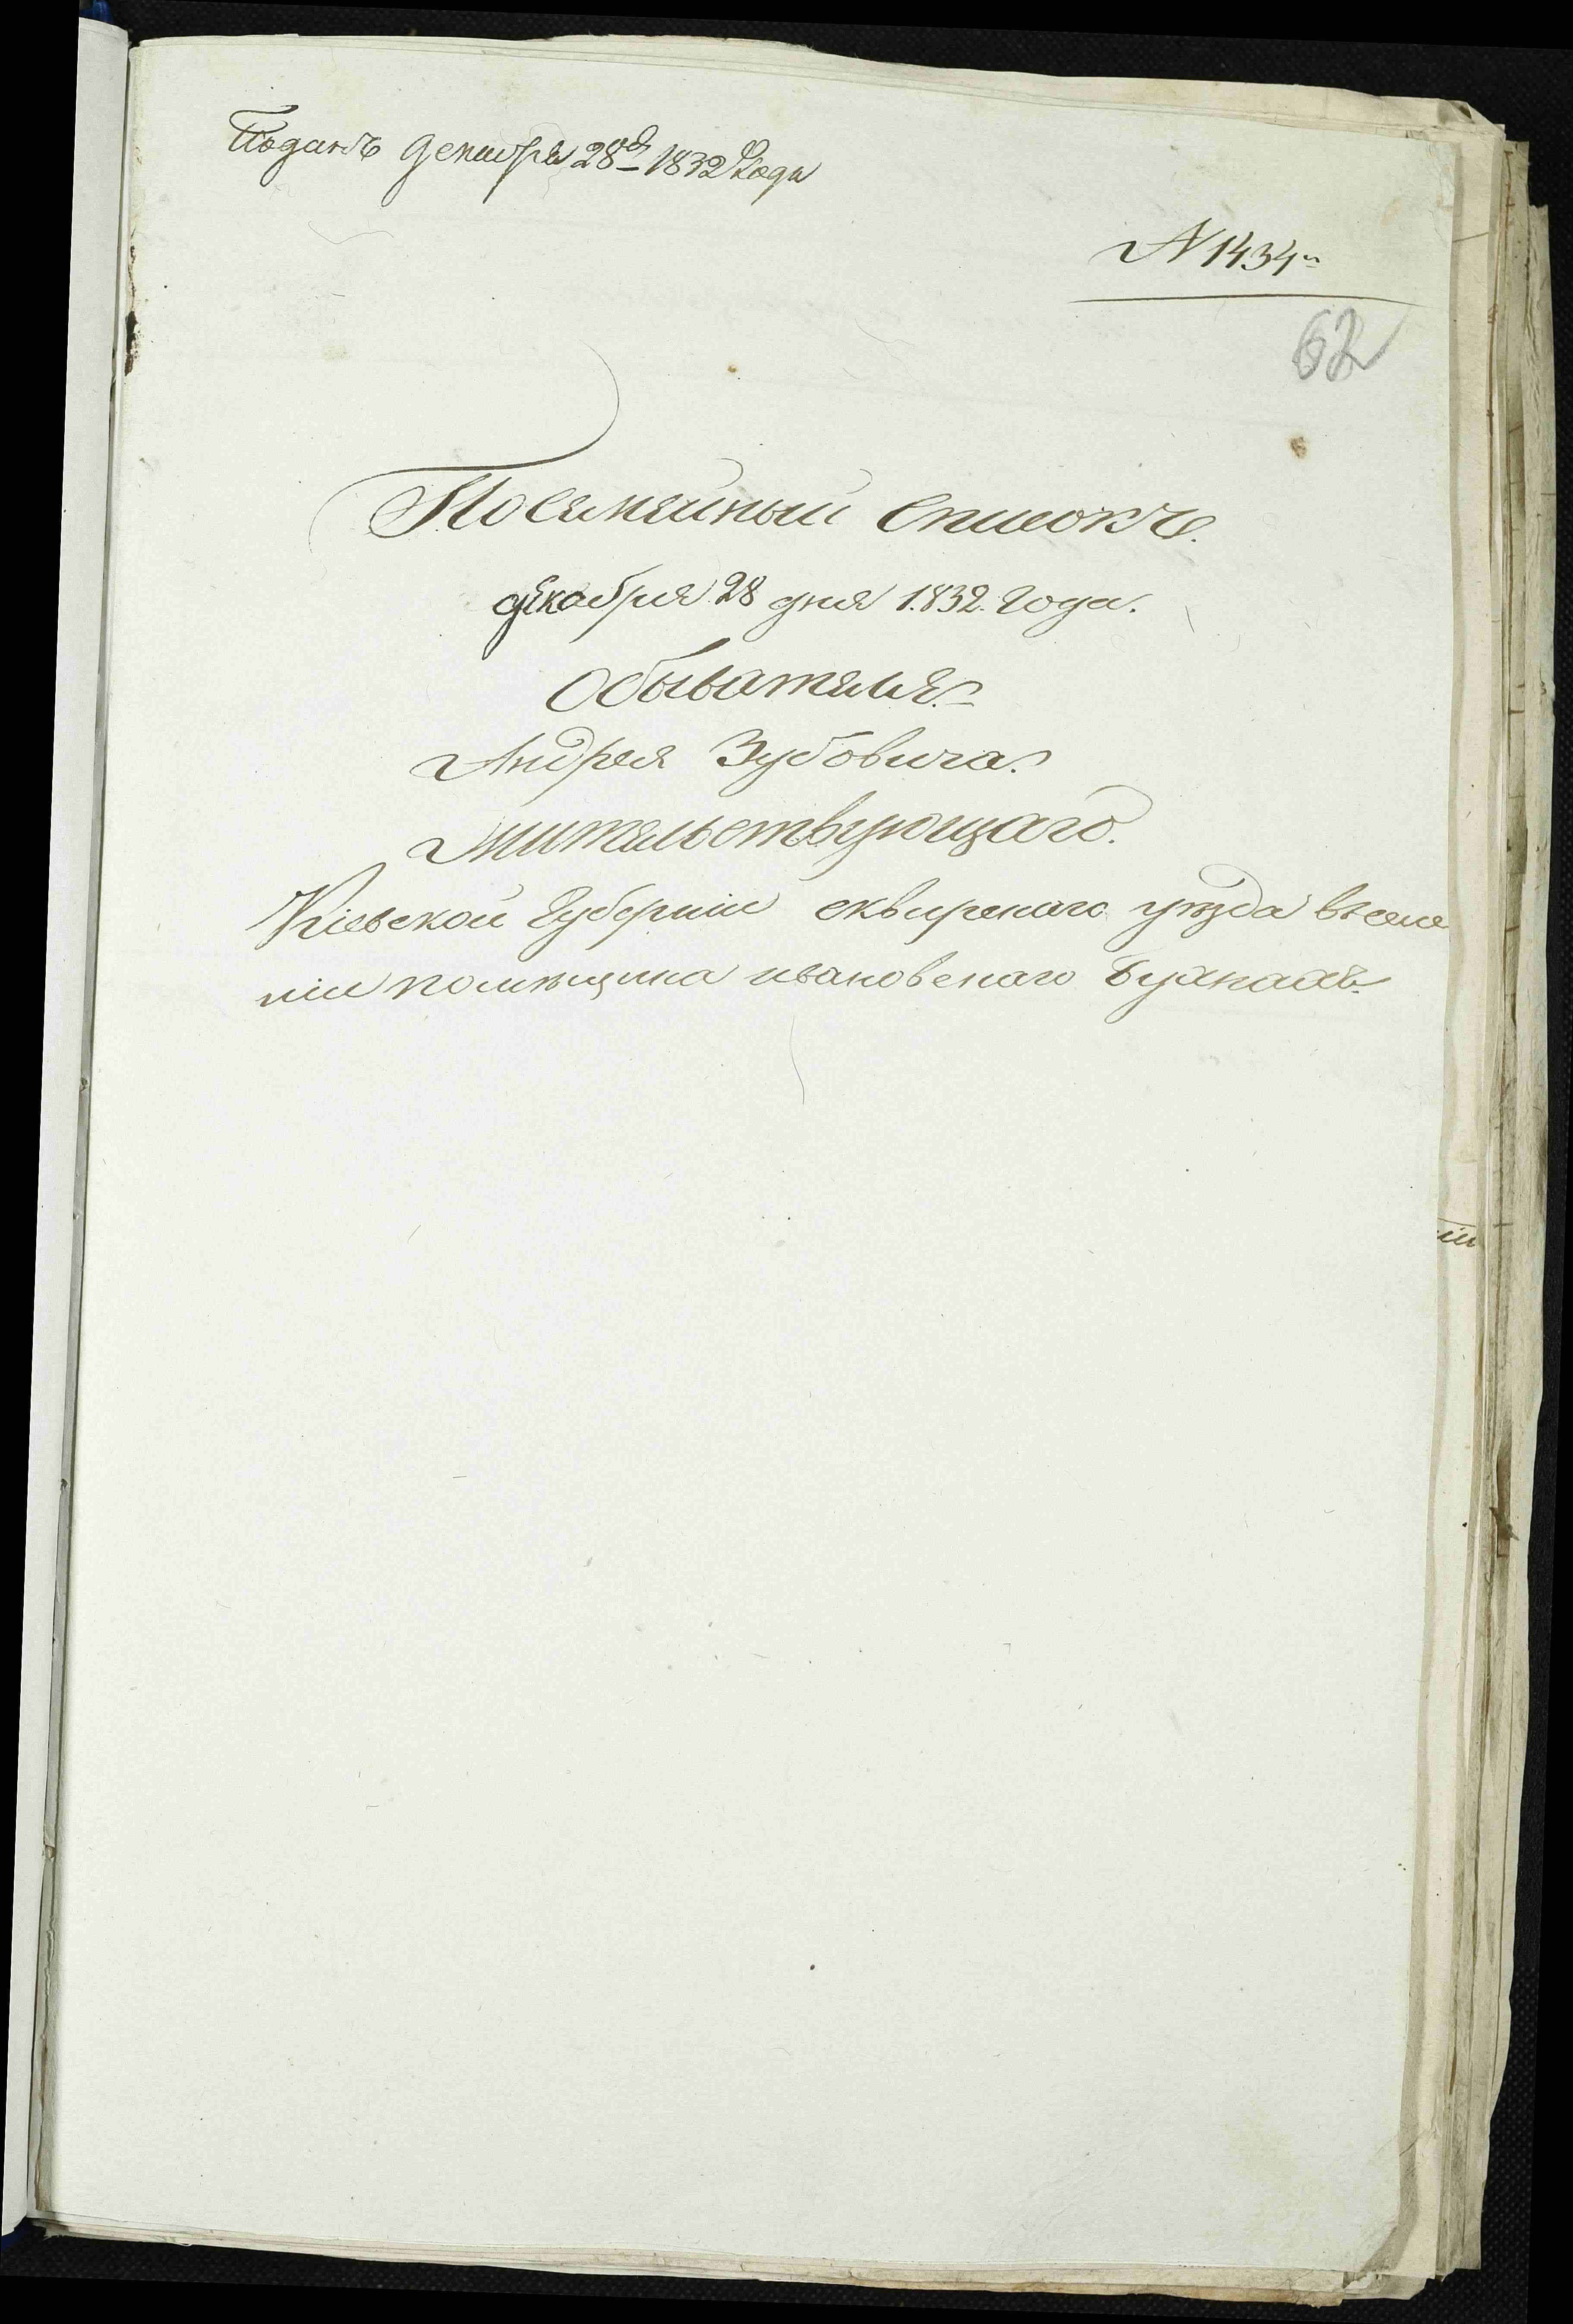 Поданъ декабря 28го 1832 Года
N 1434
62
Посемейный Списокъ.
декабря 28 дня 1832. Года.
Обывателя.
Андрея Зубовича.
Жительствующаго.
Кіевской Губерніи сквирскаго уѣзда въселе
ніи помѣщика ивановскаго